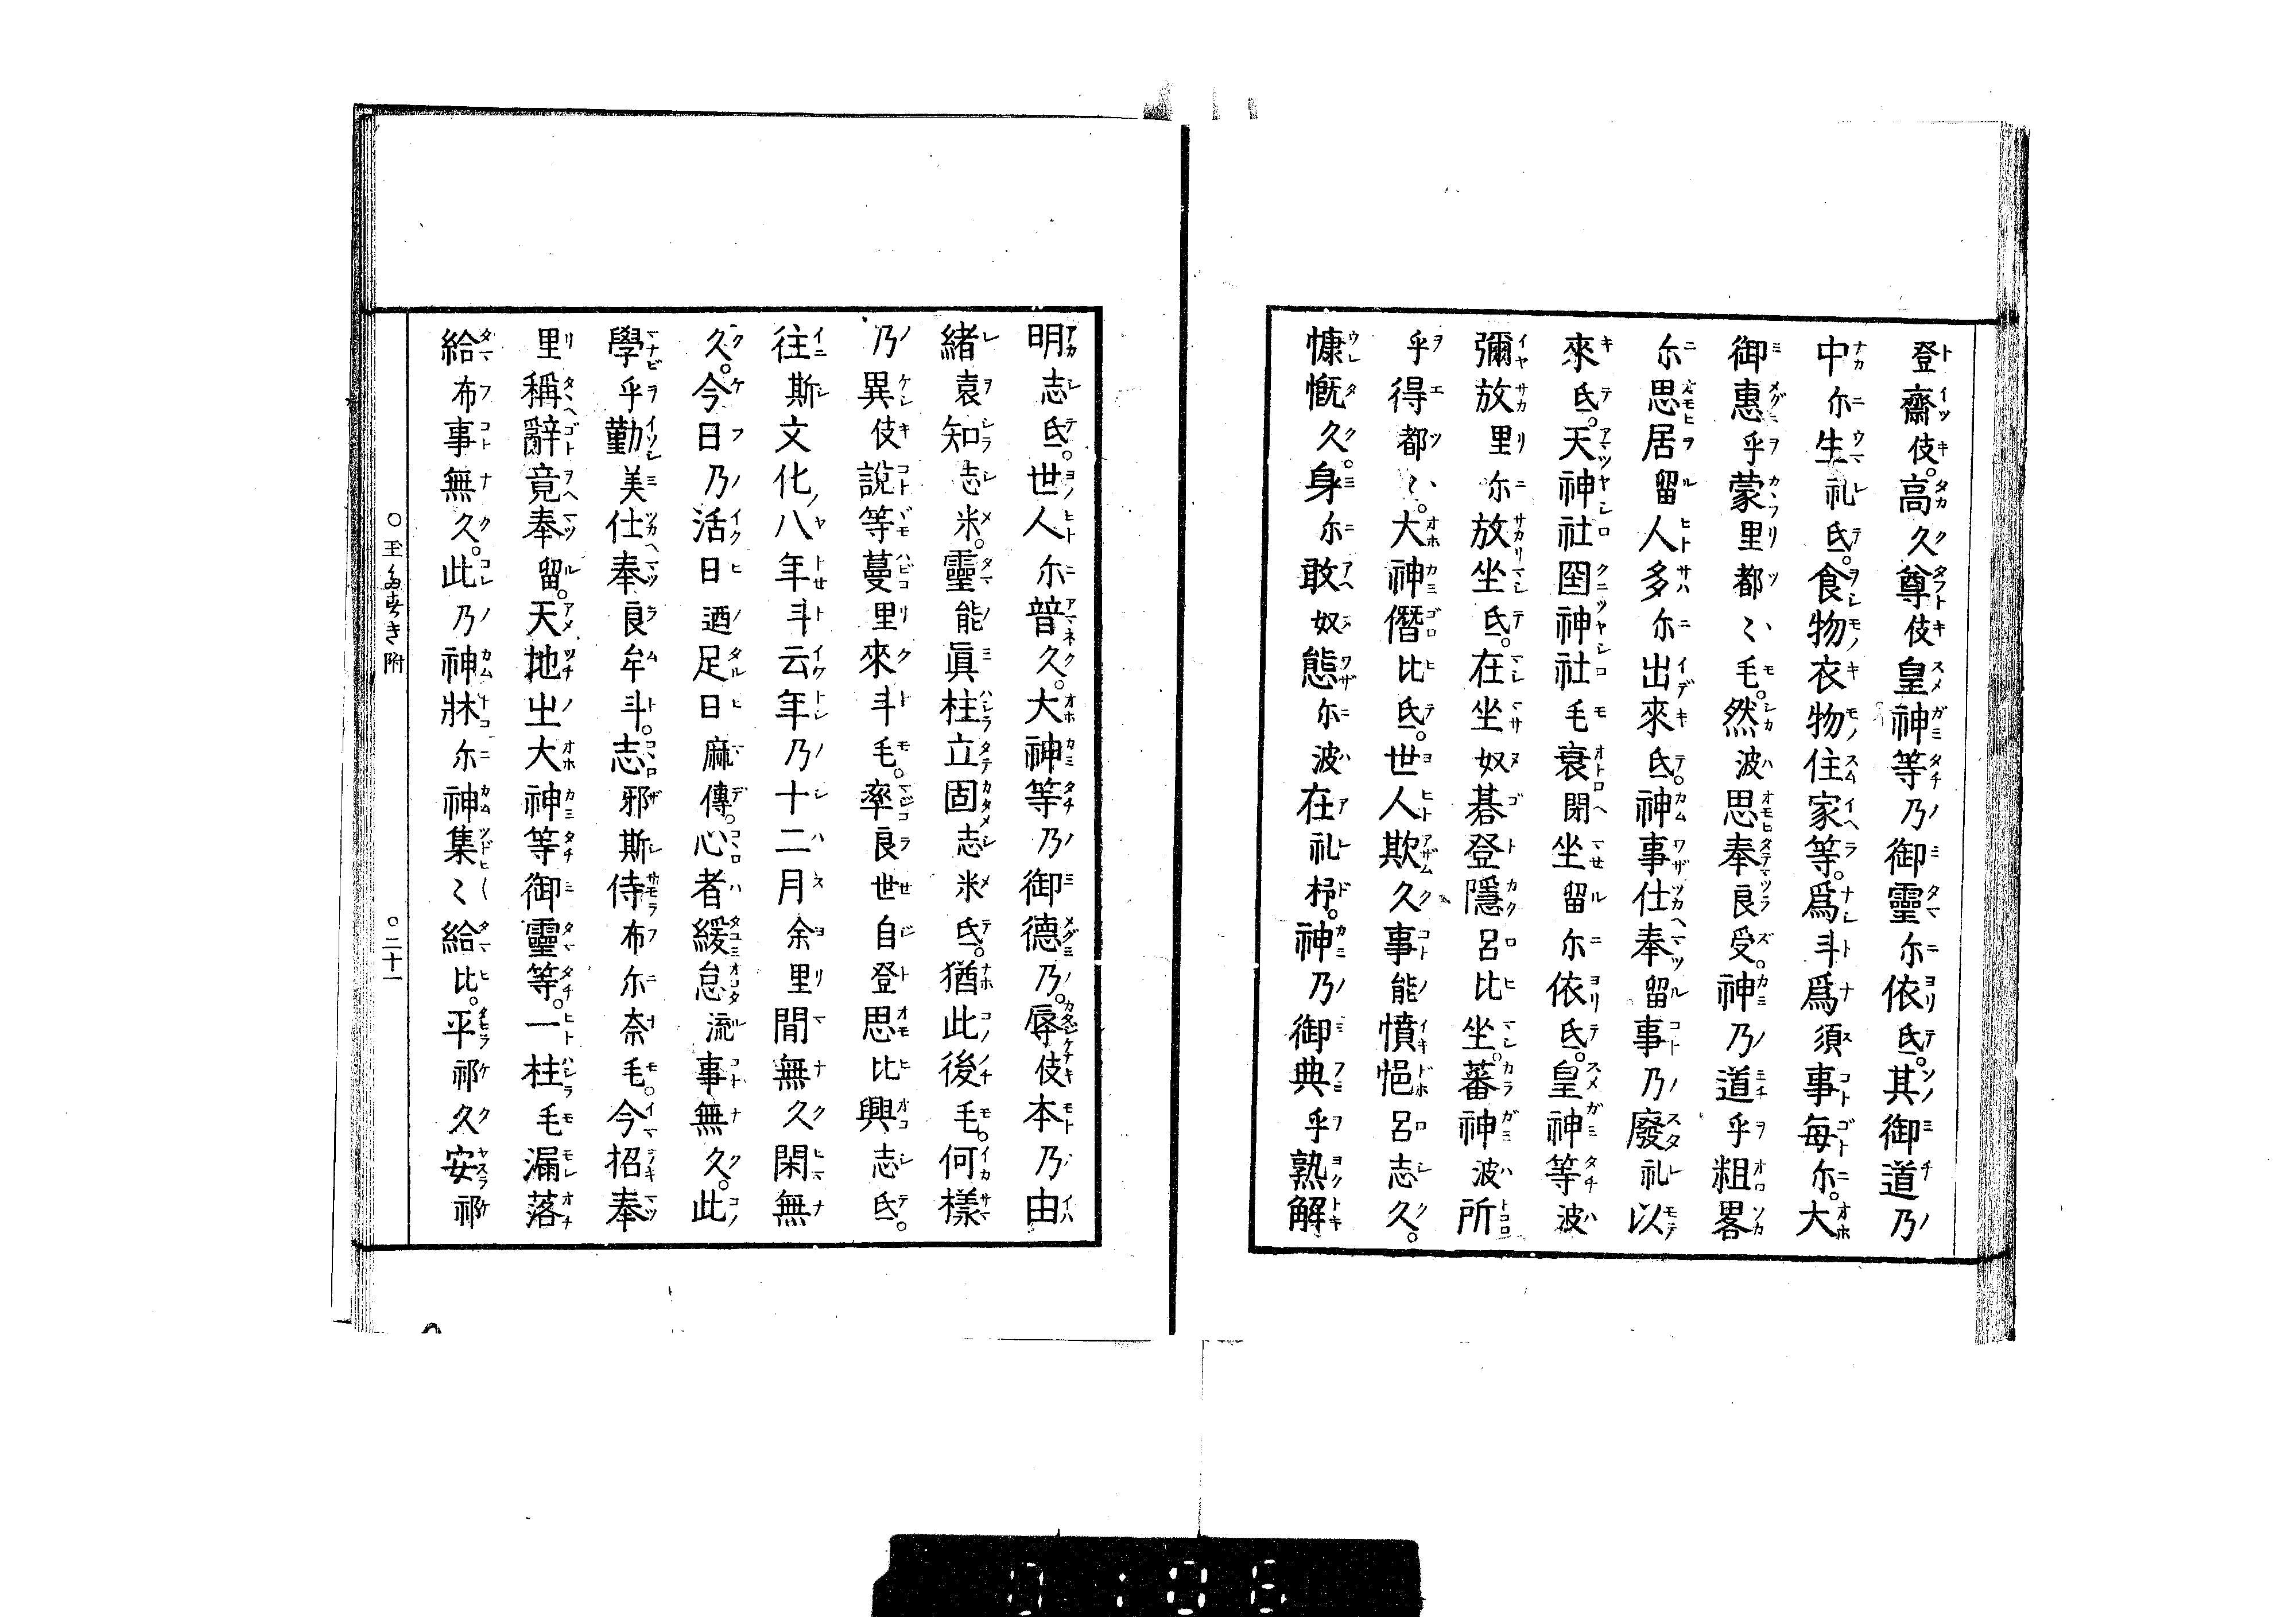 登齋伎。高久尊伎皇神等乃御靈尓依氐。其御道乃
中尓生礼氐。食物衣物住家等。爲斗爲須事每尓。大
御惠乎蒙里都々毛。然波思奉良受。神乃道乎粗畧
尓思居留人多尓出來氐。神事仕奉留事乃廢礼以
來氐。天神社国神社毛衰閇坐留尓依氐。皇神等波
彌放里尓放坐氐。在坐奴碁登隱呂比坐。蕃神波所
乎得都々。大神僭比氐。世人欺久事能憤悒呂志久。
慷慨久。身尓敢奴態尓波在礼杼。神乃御典乎熟解
明志氐。世人尓普久。大神等乃御德乃。辱伎本乃由
緒袁知志米。靈能眞柱立固志米氐。猶此後毛。何樣
乃異伎說等蔓里來斗毛。率良世自登思比興志氐。
往斯文化ノ八年斗云年乃十二月余里間無久閑無
久。今日乃活日迺足日麻傳。心者緩怠流事無久。此
學乎勤美仕奉良牟斗。志邪斯侍布尓奈毛。今招奉
里稱辭竟奉留。天地乃大神等御靈等。一柱毛漏落
給布事無久。此乃神牀尓神集々給比。平祁久安祁
○玉多すき附 ○二十一